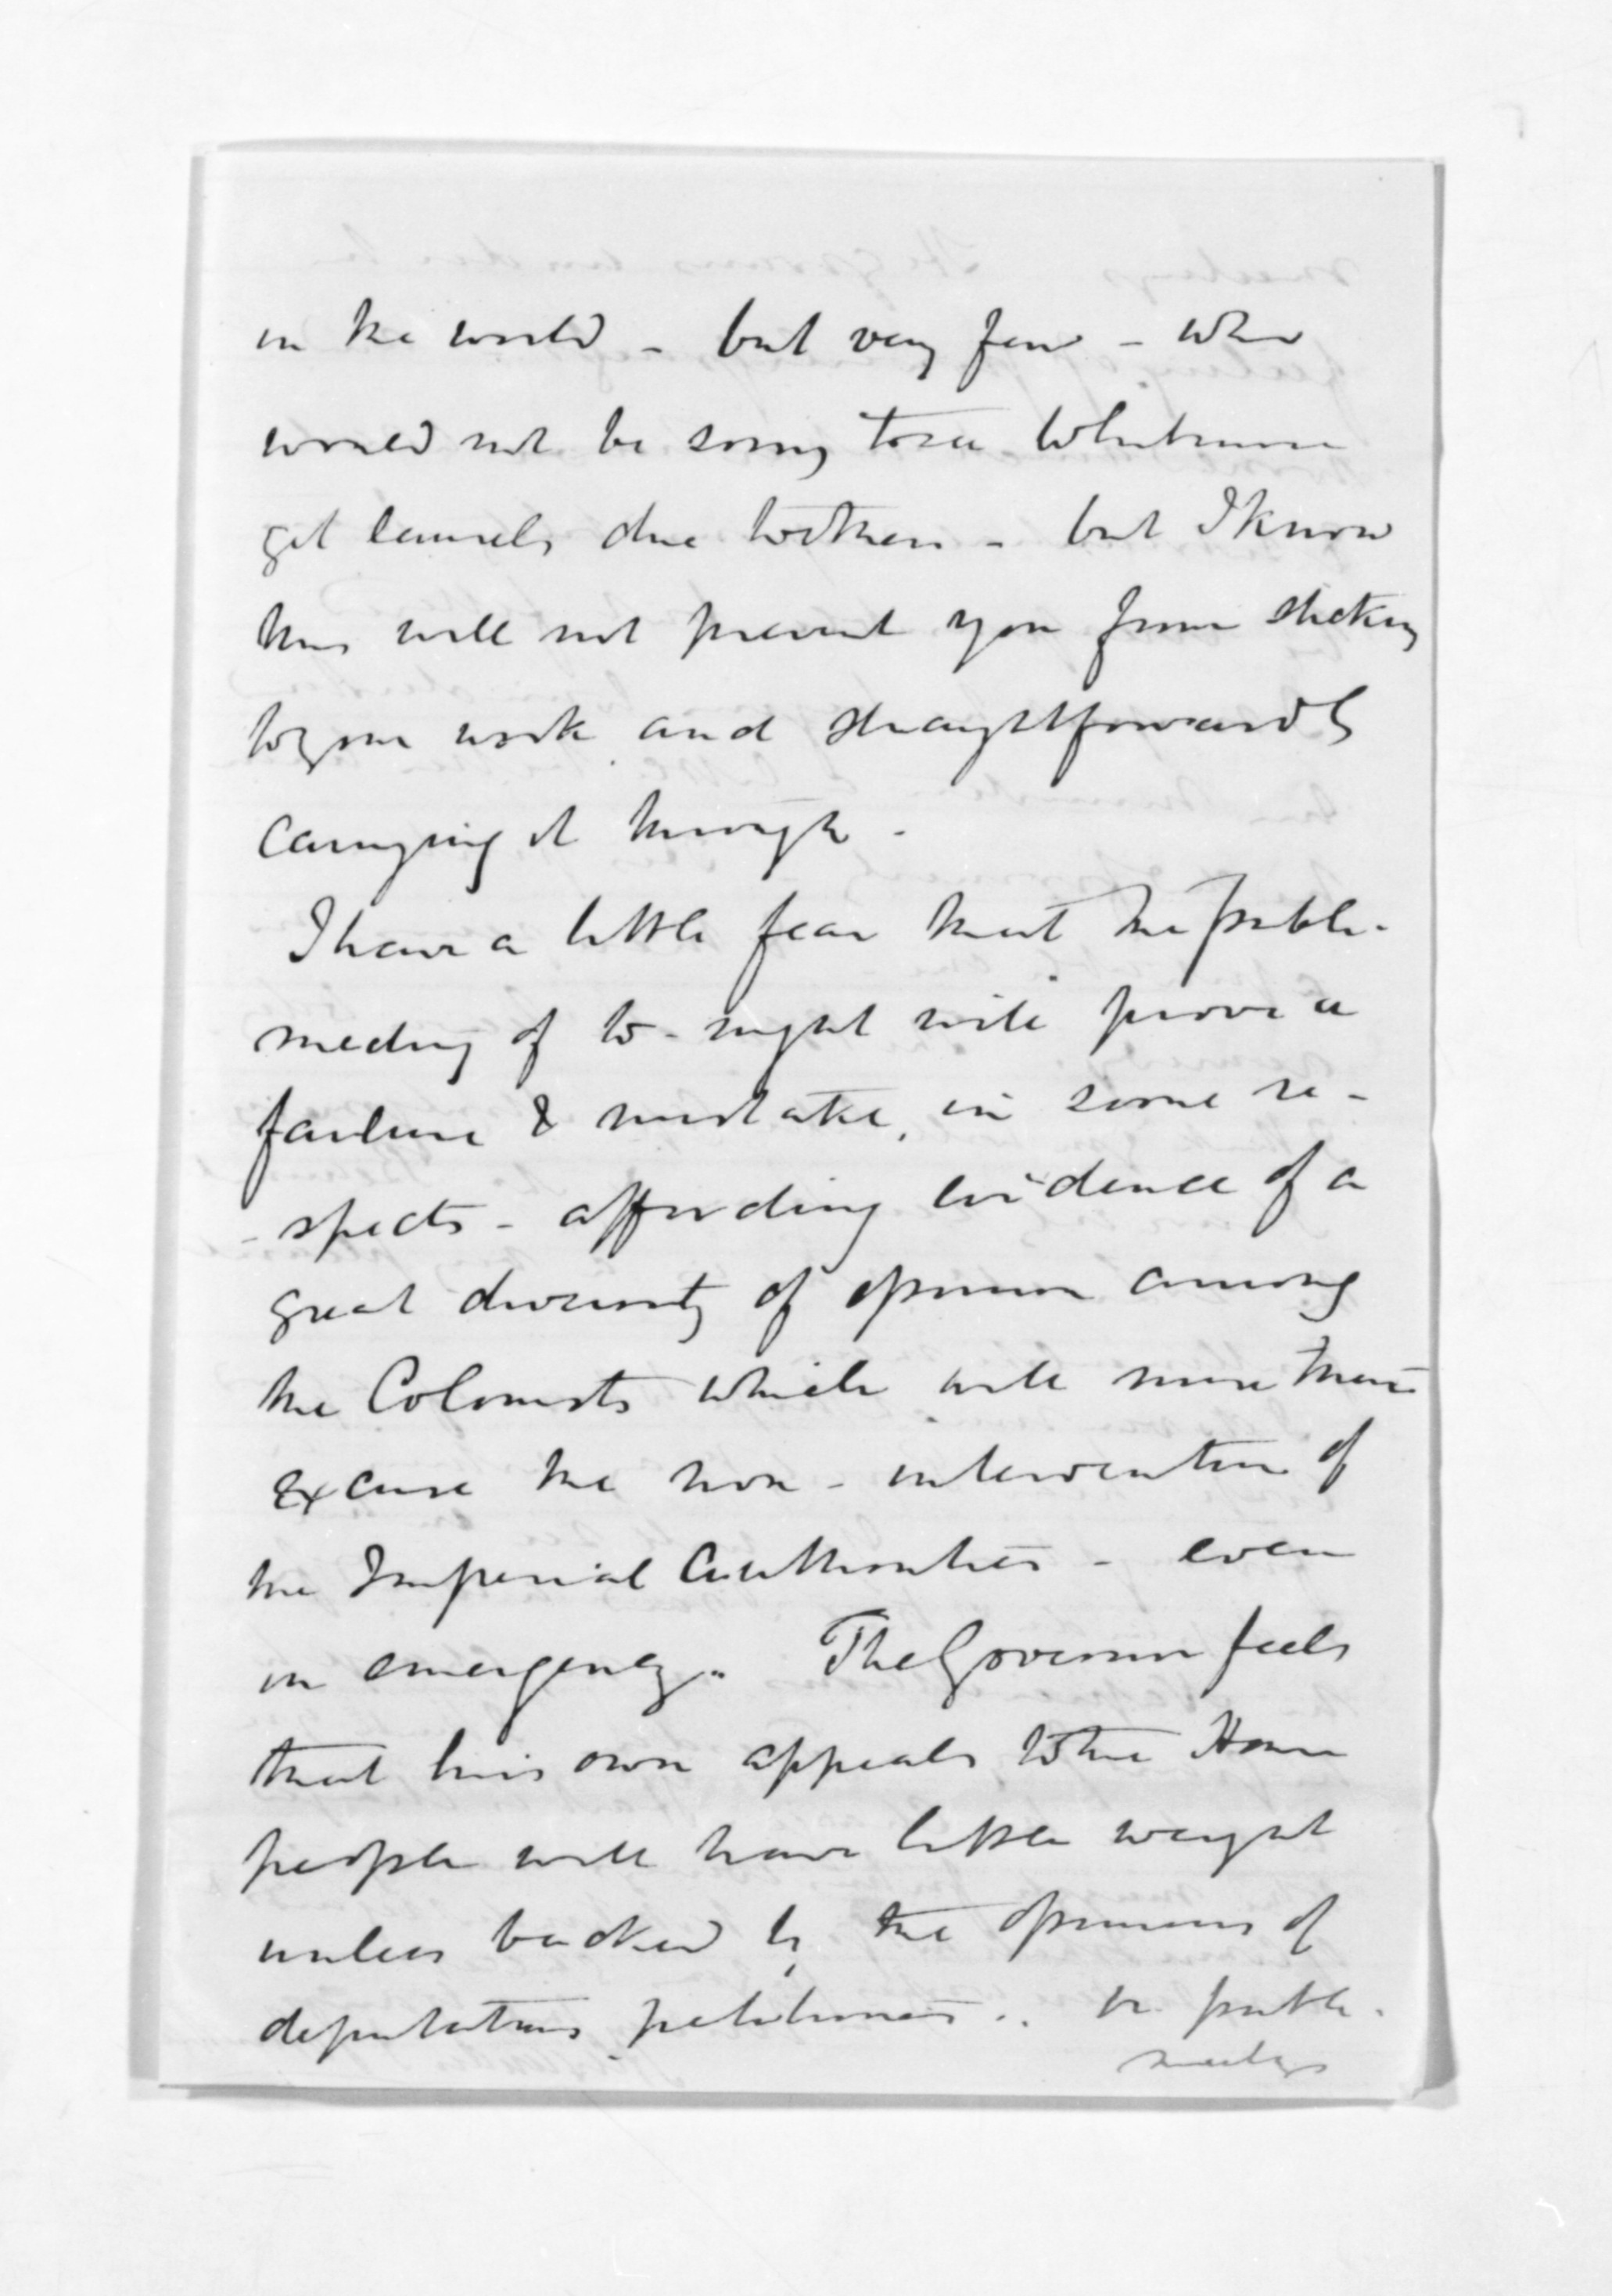 in the world - but very few - who
would not be sorry to see Whitmore
get laurels due to them - but I know
this will not prevent you from sticking
to your work and straightforwardly
carrying it through -
I have a little fear that the public
meeting of to-night will prove a
failure & mistake, in some re-
-spects - affording evidence of a
great diversity of opinion among
the Colonists which will more than
excuse the non-intervention of
the Imperial Authorities - even
in emergency. The Governor feels
that his own appeals to the Home
people will have little weight
unless backed by the opinions of
deputations petitions .. or public
meetings